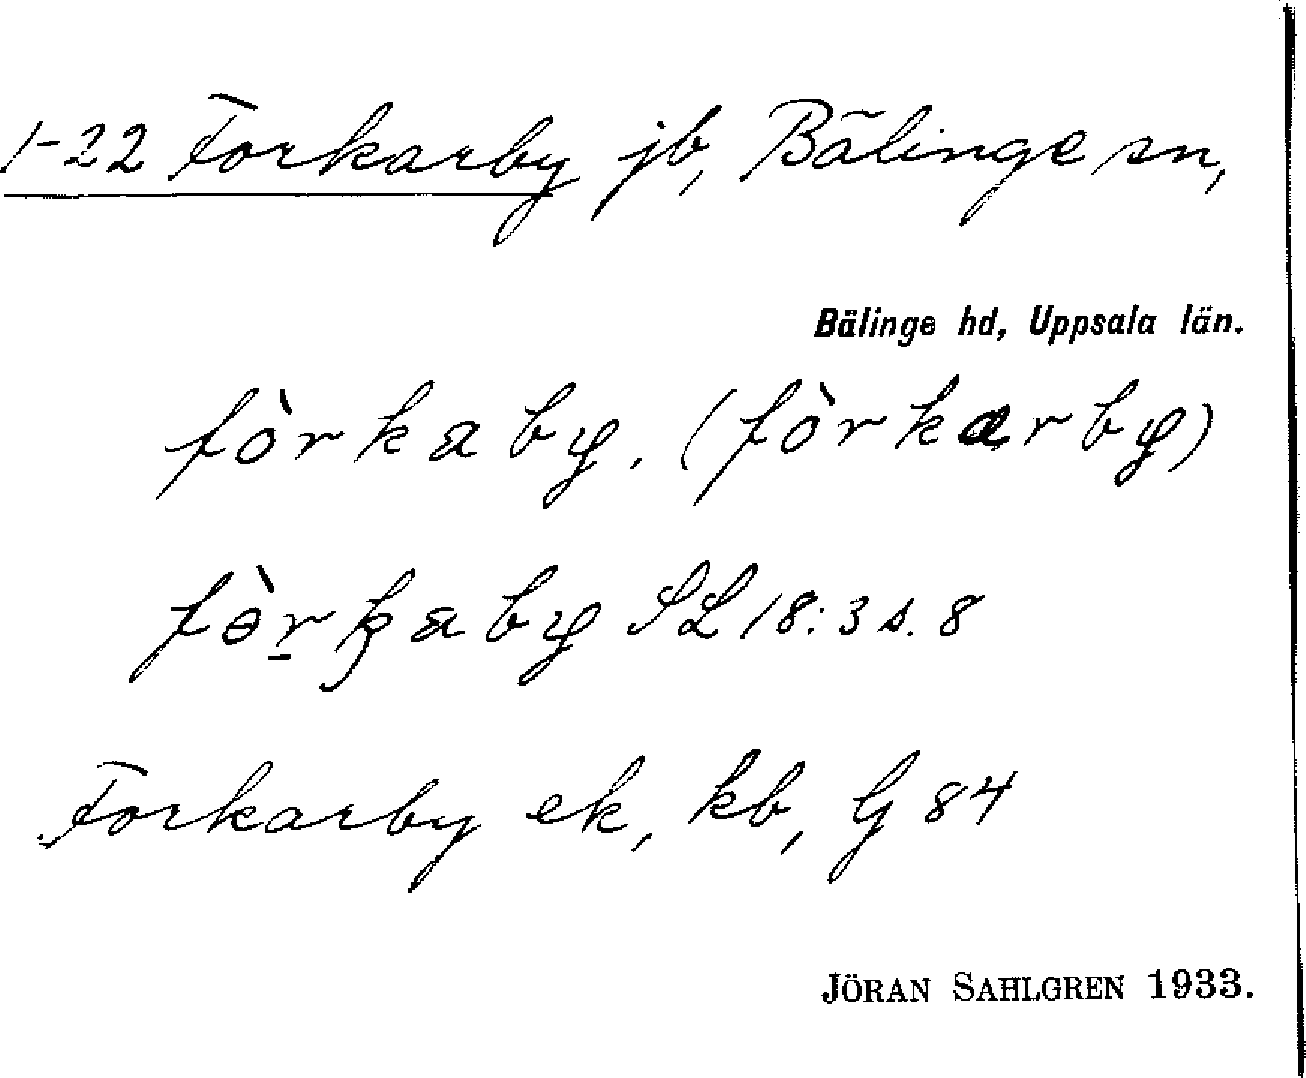 1-22 Forkarby jb, Bälinge sn,
Bälinge hd, Uppsala län.
fòrkaby. (fòrkarby)
fɵ̀rkaby SL 18:3 s. 8
Forkarby ek, kb, G 84
JÖRAN SAHLGREN 1933.